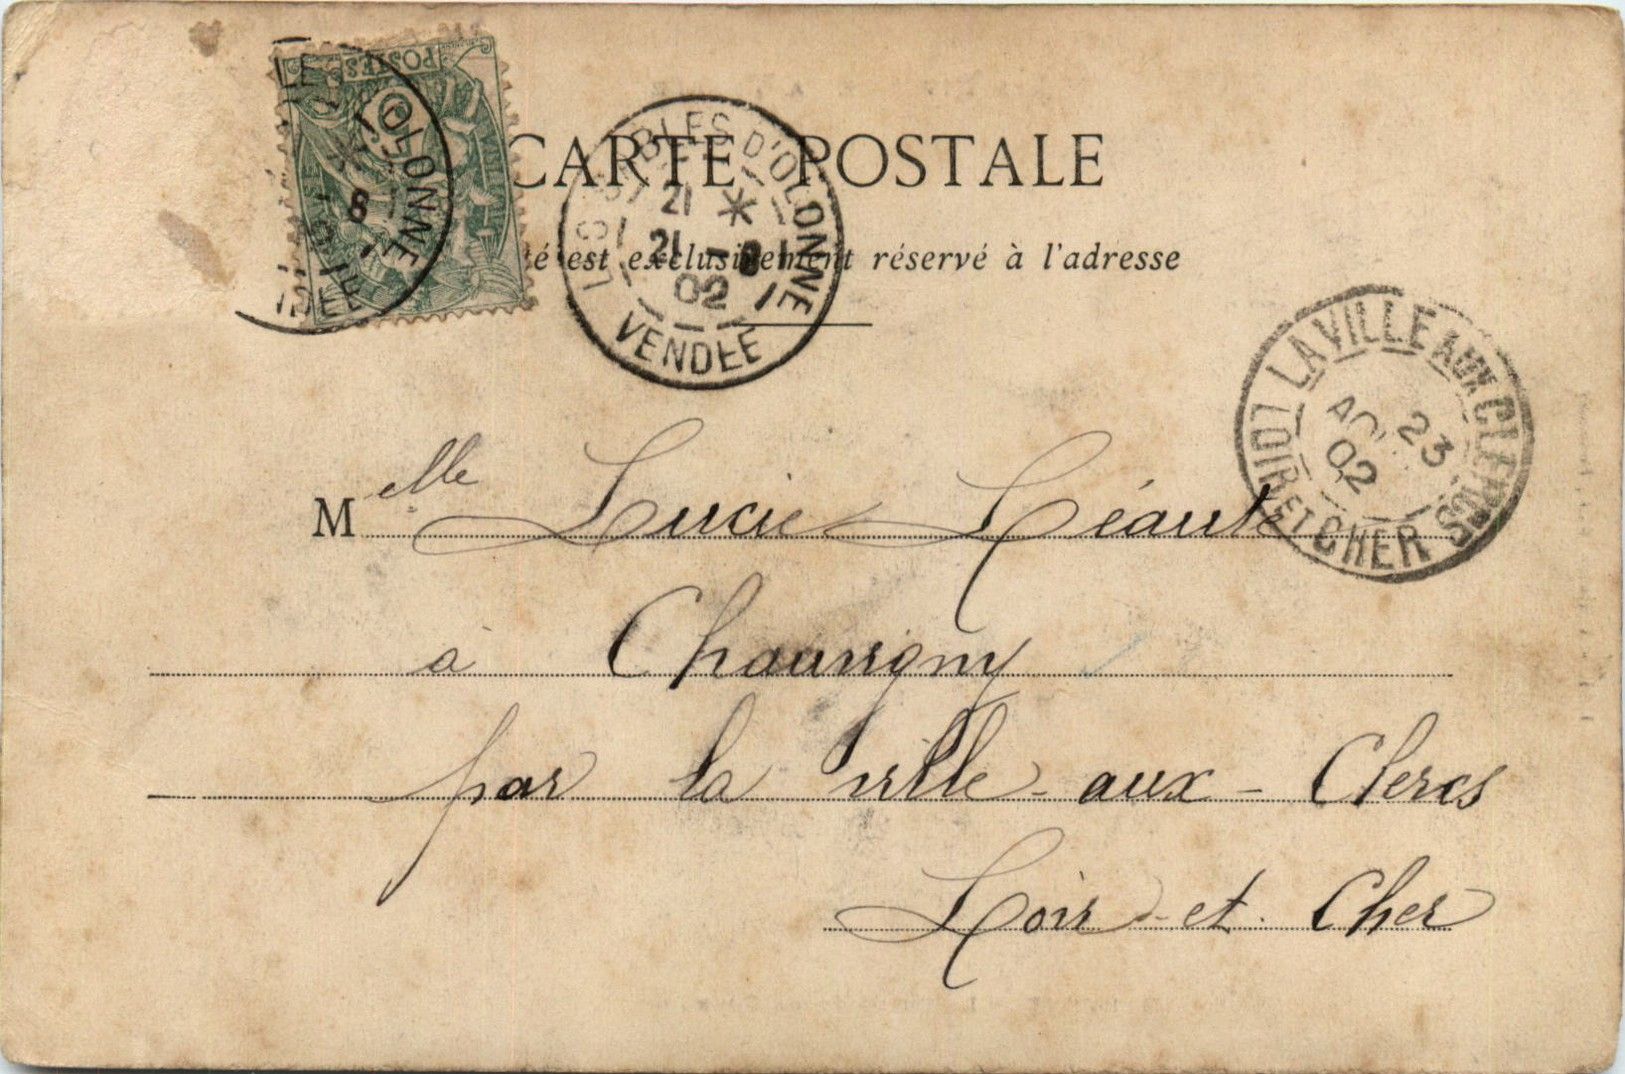 POSTES
OLONNE
8
CARTE POSTALE
LES SABLES D'OLONNE
21 *
21 -8
02
VENDÉE
té est exclusivement réservé à l'adresse
LA VILLE AUX CLERCS
23
AOUT
02
LOIR ET CHER
Melle Lucie Léauté
à Chauvigny
par la ville-aux-Clercs
Loir-et-Cher